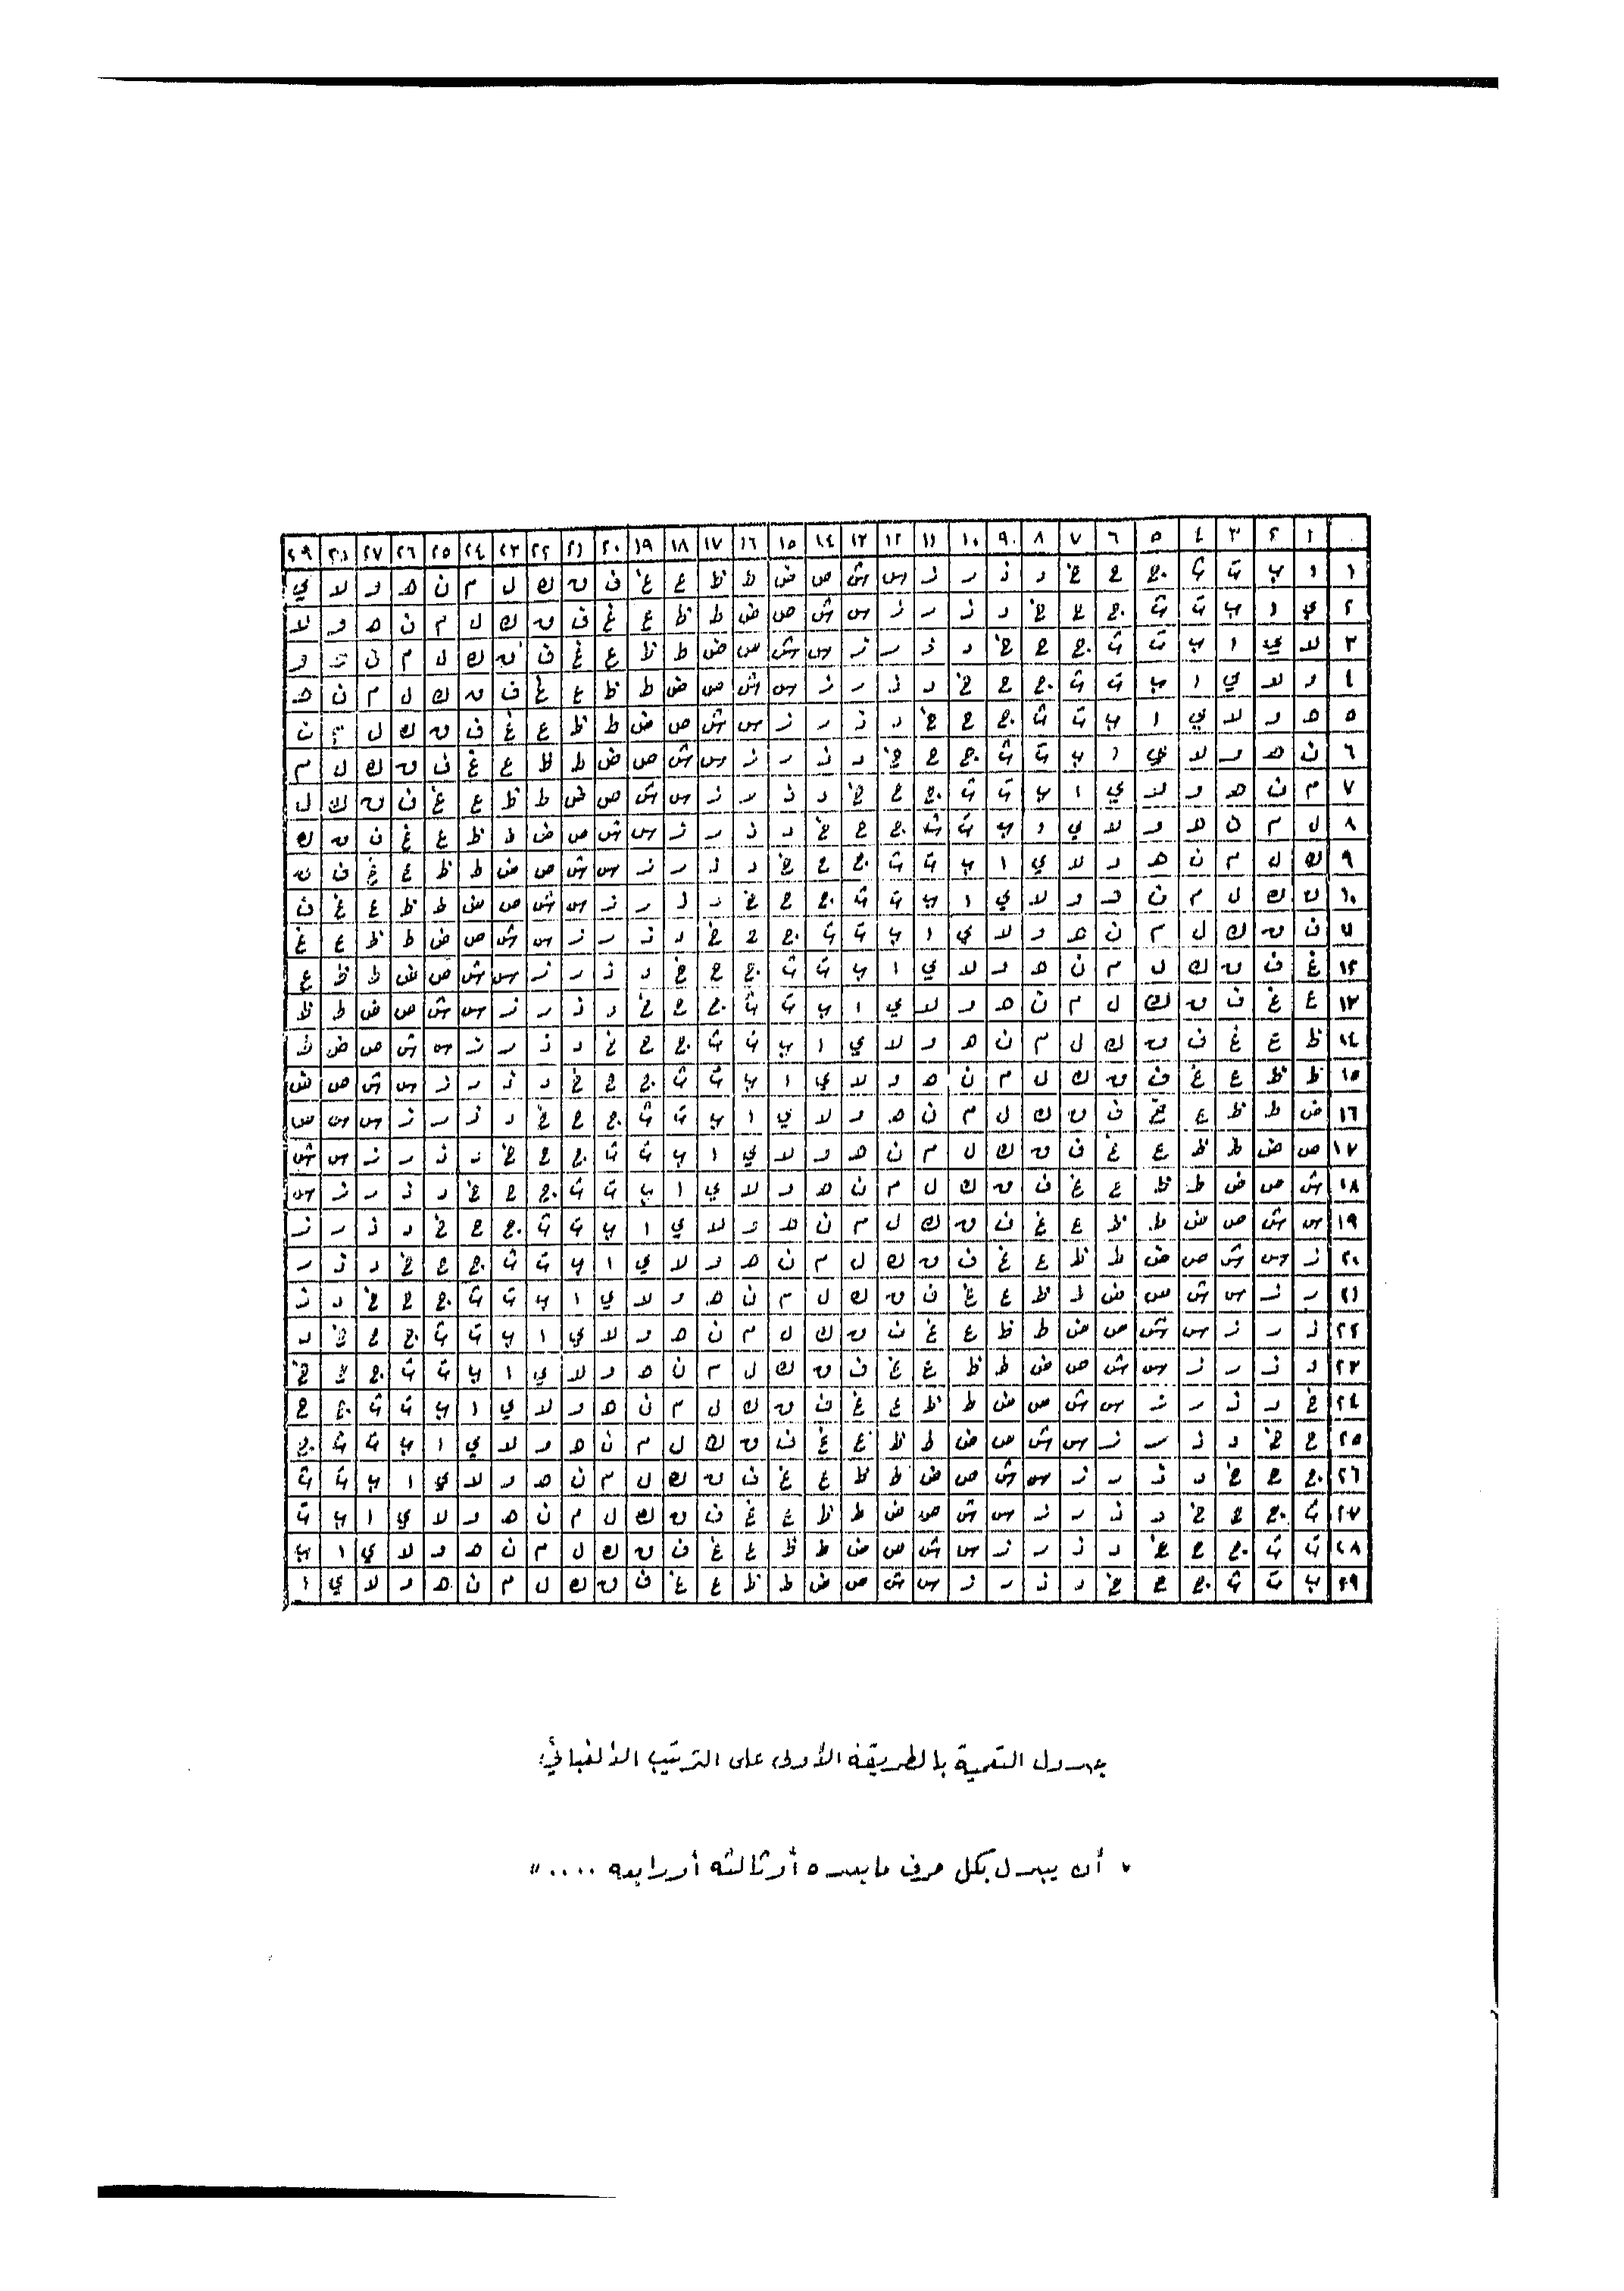 . ١ ٢ ٣ ٤ ٥ ٦ ٧ ٨ ٩ ١٠ ١١ ١٢ ١٣ ١٤ ١٥ ١٦ ١٧ ١٨ ١٩ ٢٠ ٢١ ٢٢ ٢٣ ٢٤ ٢٥ ٢٦ ٢٧ ٢٨ ٢٩
١ ا ب ت ث ج ح خ د ذ ر ز س ش ص ض ط ظ ع غ ف ق ك ل م ن ه و لا ي
٢ ي ا ب ت ث ج ح خ د ذ ر ز س ش ص ض ط ظ ع غ ف ق ك ل م ن ه و لا
٣ لا ي ا ب ت ث ج ح خ د ذ ر ز س ش ص ض ط ظ ع غ ف ق ك ل م ن ه و
٤ و لا ي ا ب ت ث ج ح خ د ذ ر ز س ش ص ض ط ظ ع غ ف ق ك ل م ن ه
٥ ه و لا ي ا ب ت ث ج ح خ د ذ ر ز س ش ص ض ط ظ ع غ ف ق ك ل م ن
٦ ن ه و لا ي ا ب ت ث ج ح خ د ذ ر ز س ش ص ض ط ظ ع غ ف ق ك ل م
٧ م ن ه و لا ي ا ب ت ث ج ح خ د ذ ر ز س ش ص ض ط ظ ع غ ف ق ك ل
٨ ل م ن ه و لا ي ا ب ت ث ج ح خ د ذ ر ز س ش ص ض ط ظ ع غ ف ق ك
٩ ك ل م ن ه و لا ي ا ب ت ث ج ح خ د ذ ر ز س ش ص ض ط ظ ع غ ف ق
١٠ ق ك ل م ن ه و لا ي ا ب ت ث ج ح خ د ذ ر ز س ش ص ض ط ظ ع غ ف
١١ ف ق ك ل م ن ه و لا ي ا ب ت ث ج ح خ د ذ ر ز س ش ص ض ط ظ ع غ
١٢ غ ف ق ك ل م ن ه و لا ي ا ب ت ث ج ح خ د ذ ر ز س ش ص ض ط ظ ع
١٣ ع غ ف ق ك ل م ن ه و لا ي ا ب ت ث ج ح خ د ذ ر ز س ش ص ض ط ظ
١٤ ظ ع غ ف ق ك ل م ن ه و لا ي ا ب ت ث ج ح خ د ذ ر ز س ش ص ض ط
١٥ ط ظ ع غ ف ق ك ل م ن ه و لا ي ا ب ت ث ج ح خ د ذ ر ز س ش ص ض
١٦ ض ط ظ ع غ ف ق ك ل م ن ه و لا ي ا ب ت ث ج ح خ د ذ ر ز س ش ص
١٧ ص ض ط ظ ع غ ف ق ك ل م ن ه و لا ي ا ب ت ث ج ح خ د ذ ر ز س ش
١٨ ش ص ض ط ظ ع غ ف ق ك ل م ن ه و لا ي ا ب ت ث ج ح خ د ذ ر ز س
١٩ س ش ص ض ط ظ ع غ ف ق ك ل م ن ه و لا ي ا ب ت ث ج ح خ د ذ ر ز
٢٠ ز س ش ص ض ط ظ ع غ ف ق ك ل م ن ه و لا ي ا ب ت ث ج ح خ د ذ ر
٢١ ر ز س ش ص ض ط ظ ع غ ف ق ك ل م ن ه و لا ي ا ب ت ث ج ح خ د ذ
٢٢ ذ ر ز س ش ص ض ط ظ ع غ ف ق ك ل م ن ه و لا ي ا ب ت ث ج ح خ د
٢٣ د ذ ر ز س ش ص ض ط ظ ع غ ف ق ك ل م ن ه و لا ي ا ب ت ث ج ح خ
٢٤ خ د ذ ر ز س ش ص ض ط ظ ع غ ف ق ك ل م ن ه و لا ي ا ب ت ث ج ح
٢٥ ح خ د ذ ر ز س ش ص ض ط ظ ع غ ف ق ك ل م ن ه و لا ي ا ب ت ث ج
٢٦ ج ح خ د ذ ر ز س ش ص ض ط ظ ع غ ف ق ك ل م ن ه و لا ي ا ب ت ث
٢٧ ث ج ح خ د ذ ر ز س ش ص ض ط ظ ع غ ف ق ك ل م ن ه و لا ي ا ب ت
٢٨ ت ث ج ح خ د ذ ر ز س ش ص ض ط ظ ع غ ف ق ك ل م ن ه و لا ي ا ب
٢٩ ب ت ث ج ح خ د ذ ر ز س ش ص ض ط ظ ع غ ف ق ك ل م ن ه و لا ي ا
جدول التعمية بالطريقة الأولى على الترتيب الألفبائي:
" أن يبدل بكل حرف ما بعده أو ثالثه أو رابعه .... "